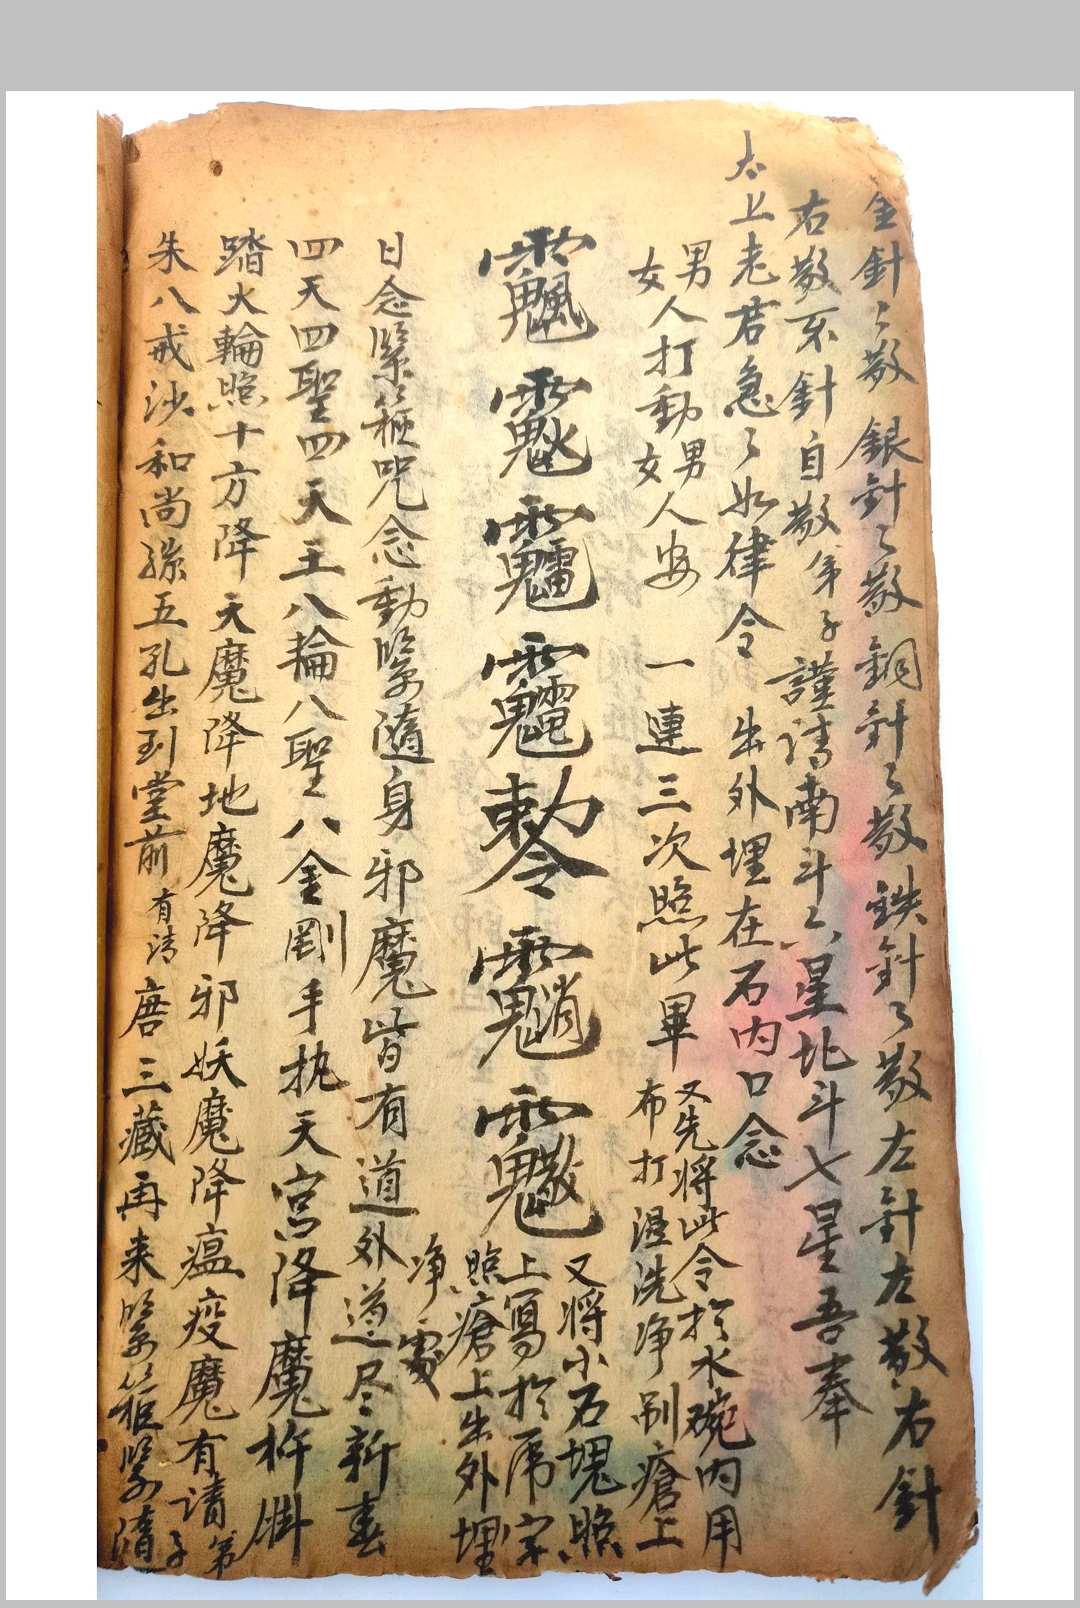 金針〻散銀針〻散銅針〻散鉄針〻散左針左散右針
右散不針自散弟子謹請南斗六星北斗七星吾奉
太上老君急〻如律令 出外埋在石内口念
男女人打動男女人安 一連三次照此畢
又先将此令於水碗内用
布打湿洗净剐瘡上
勅令
又将小石塊照
上寫於席字
照瘡上出外埋
净處
日念緊箍咒念動緊隨身邪魔皆有道外道尽新
四天四聖四天王八輪八聖八金剛手执天宫降魔杵
踏火輪照十方降天魔降地魔降邪妖魔降瘟疫魔有請弟子
朱八戒沙和尚孫五孔出到堂前有請唐三藏再来緊箍緊隨